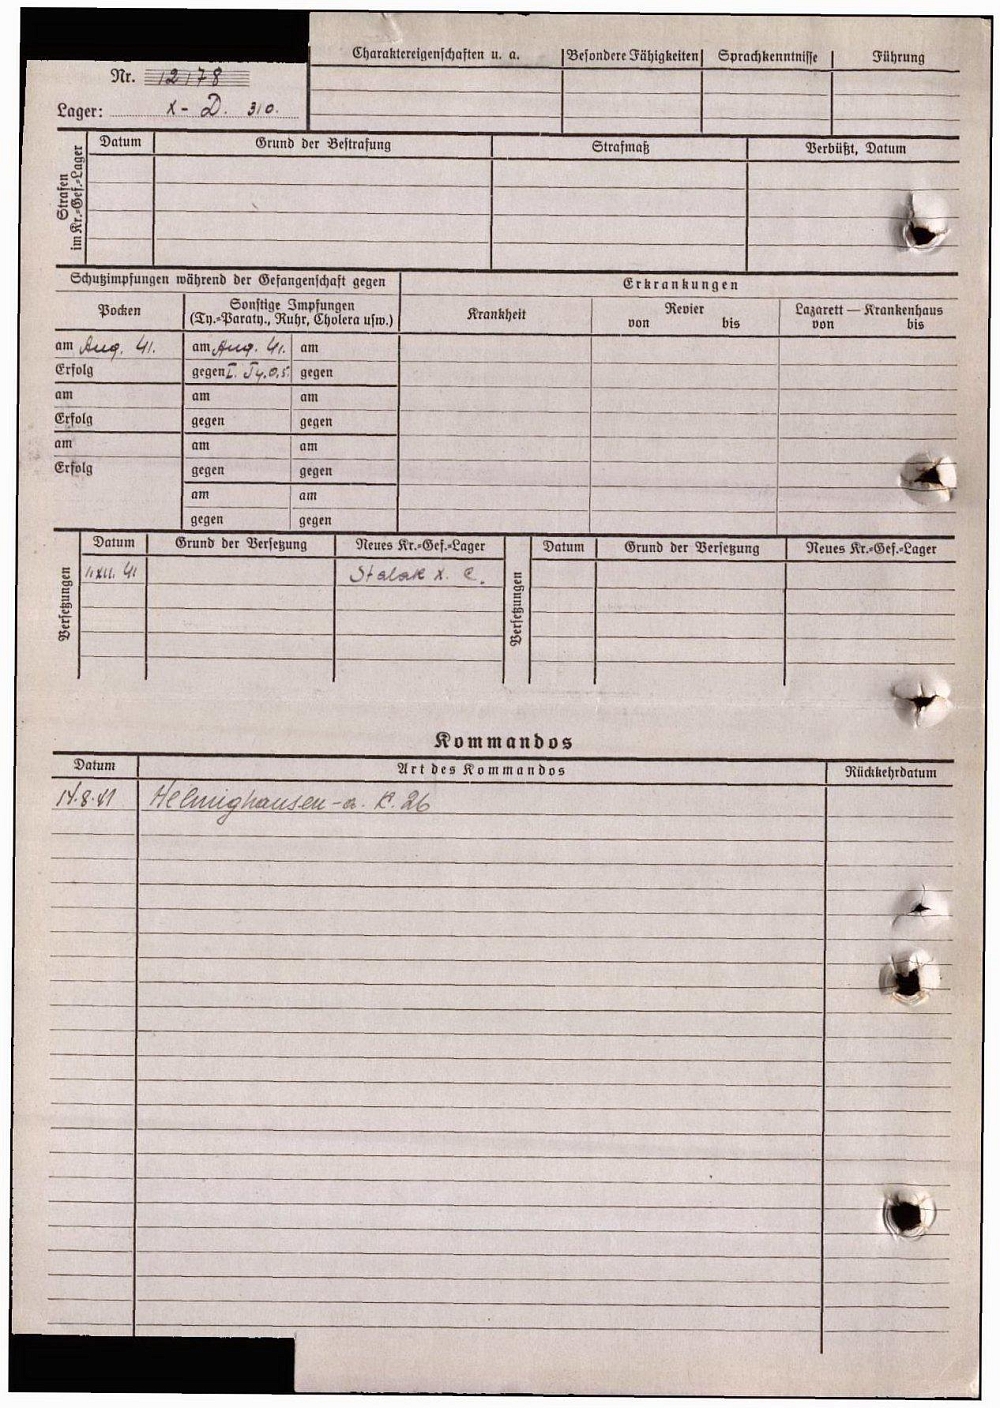 Charaktereigenschaften u. a. Besondere Fähigkeiten Sprachkenntnisse Führung
Nr. 12178
Lager: X-D. 310.
Strafen im Kr.=Gef.=Lager
Datum Grund der Bestrafung Strafmaß Verbüßt, Datum
Schutzimpfungen während der Gefangenschaft gegen Erkrankungen
Pocken Sonstige Impfungen
(Ty.=Paraty., Ruhr, Cholera usw.)
Krankheit Revier
von bis
Lazarett — Krankenhaus
von bis
am Aug. 41. am Aug. 41. am
Erfolg gegen I. Ty. gegen
am am am
Erfolg gegen gegen
am am am
Erfolg gegen gegen
am am
gegen gegen
Versetzungen
Datum Grund der Versetzung Neues Kr.=Gef.=Lager
XII. 41 Stalak X. C.
Versetzungen
Datum Grund der Versetzung Neues Kr.=Gef.=Lager
Kommandos
Datum Art des Kommandos Rückkehrdatum
14.8.41 26